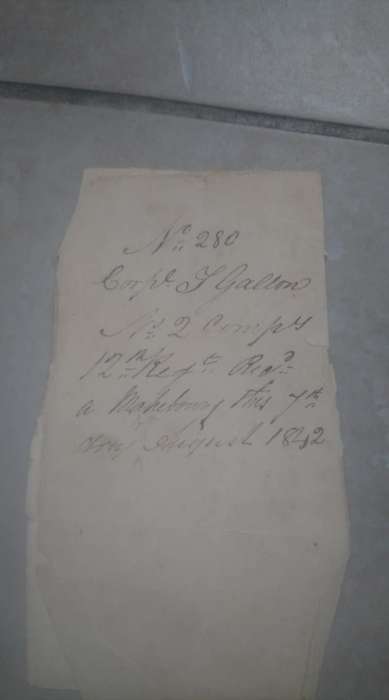 No 280
Corpl J Gallon
No 2 Compy
12th Regt Regd
a Mahebourg this 7th
day August 1842